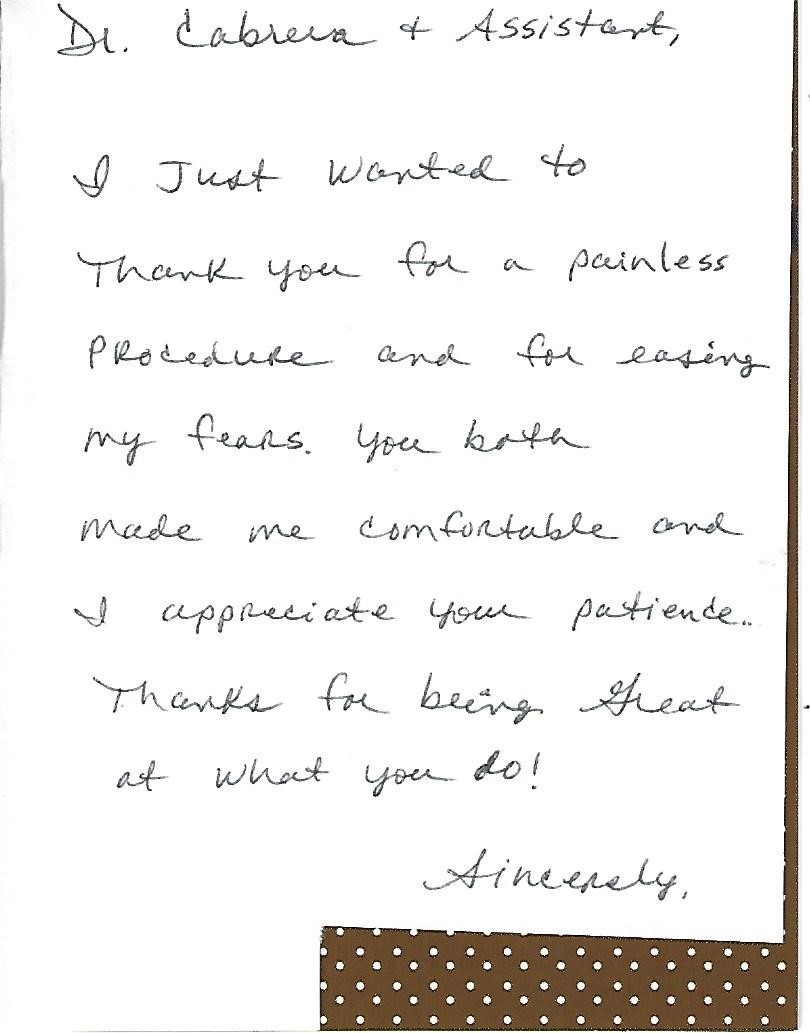 Dr. Cabrera + Assistant,
I Just Wanted to
Thank you for a painless
Procedure and for easing
my fears. You both
made me comfortable and
I appreciate your patience..
Thanks for being Great
at what you do!
Sincerely,